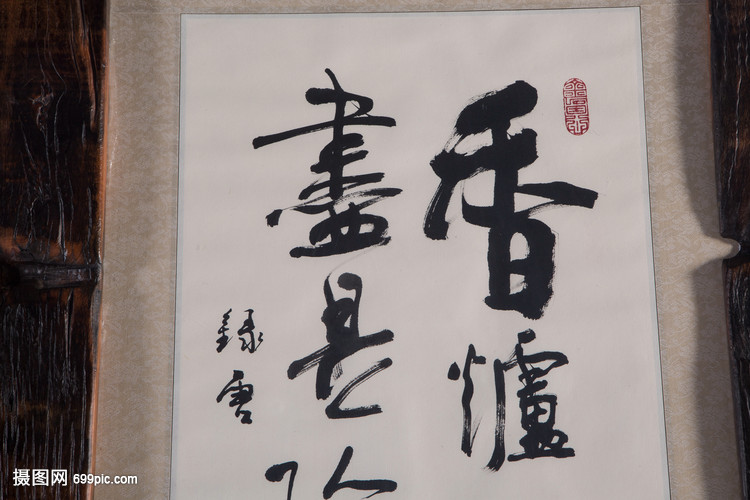 香爐
盡是
錄雪
摄图网 699pic.com